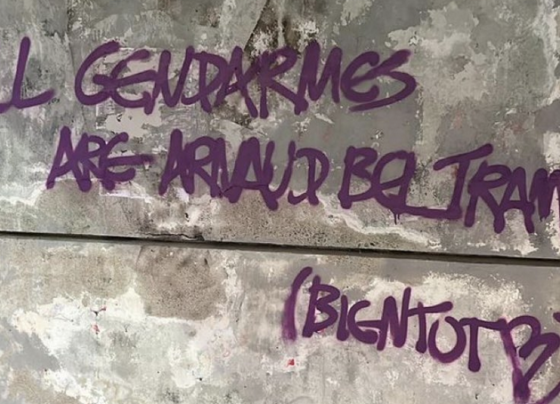 L GENDARMES
ARE ARNAUD BELTRAM
(BIENTOT